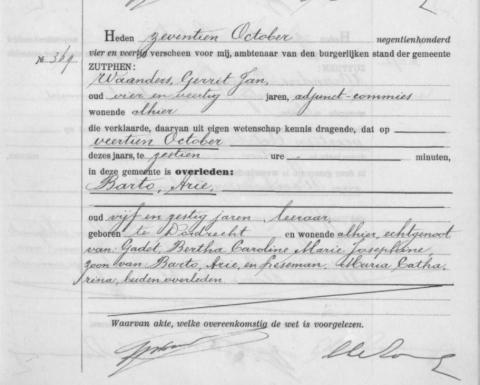 Heden zeventien October negentienhonderd
No 369. vier en veertig verscheen voor mij, ambtenaar van den burgerlijken stand der gemeente
ZUTPHEN:
Waanders, Gerrit Jan,
oud vier en veertig jaren, adjunct-commies
wonende alhier
die verklaarde, daarvan uit eigen wetenschap kennis dragende, dat op
veertien October
dezes jaars, te zestien ure minuten,
in deze gemeente is overleden:
Barto, Arie,
oud vijf en zestig jaren, leeraar,
geboren te Dordrecht en wonende alhier, echtgenoot
van Gadet, Bertha Caroline Marie Josephine
zoon van Barto, Arie, en Maria Catha-
rina, beiden overleden
Waarvan akte, welke overeenkomstig de wet is voorgelezen.